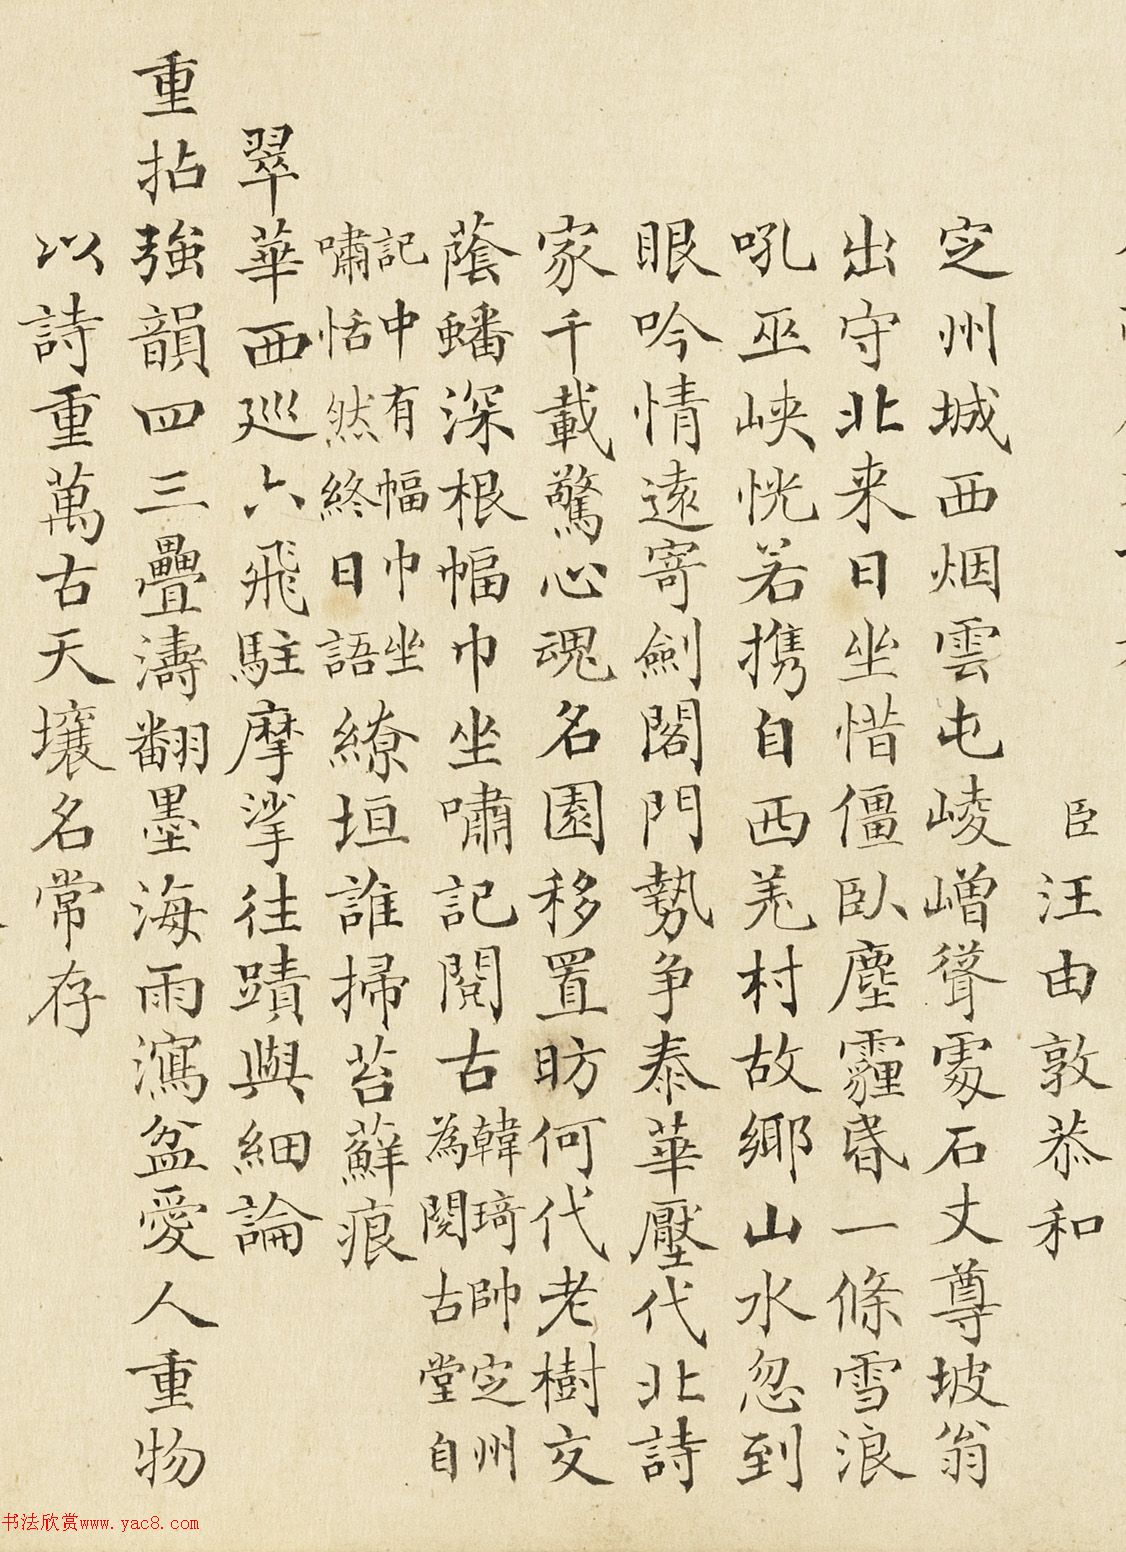 臣汪由敦恭和
定州城西烟雲屯崚嶒聳處石丈尊坡翁
出守北来日坐惜僵臥塵霾昏一條雪浪
吼巫峽恍若携自西羗村故鄉山水忽到
眼吟情遠寄劍閣門勢争泰華壓代北詩
家千載驚心魂名園移置昉何代老樹交
蔭蟠深根幅巾坐嘯記閱古韓琦帥定州為閱古堂自
記中有幅巾坐嘯恬然終日語繚垣誰掃苔蘚痕
翠華西廵六飛駐摩挲往蹟與細論
重拈強韻四三疊濤翻墨海雨瀉盆愛人重物
以詩重萬古天壤名常存
书法欣赏www.yac8.com